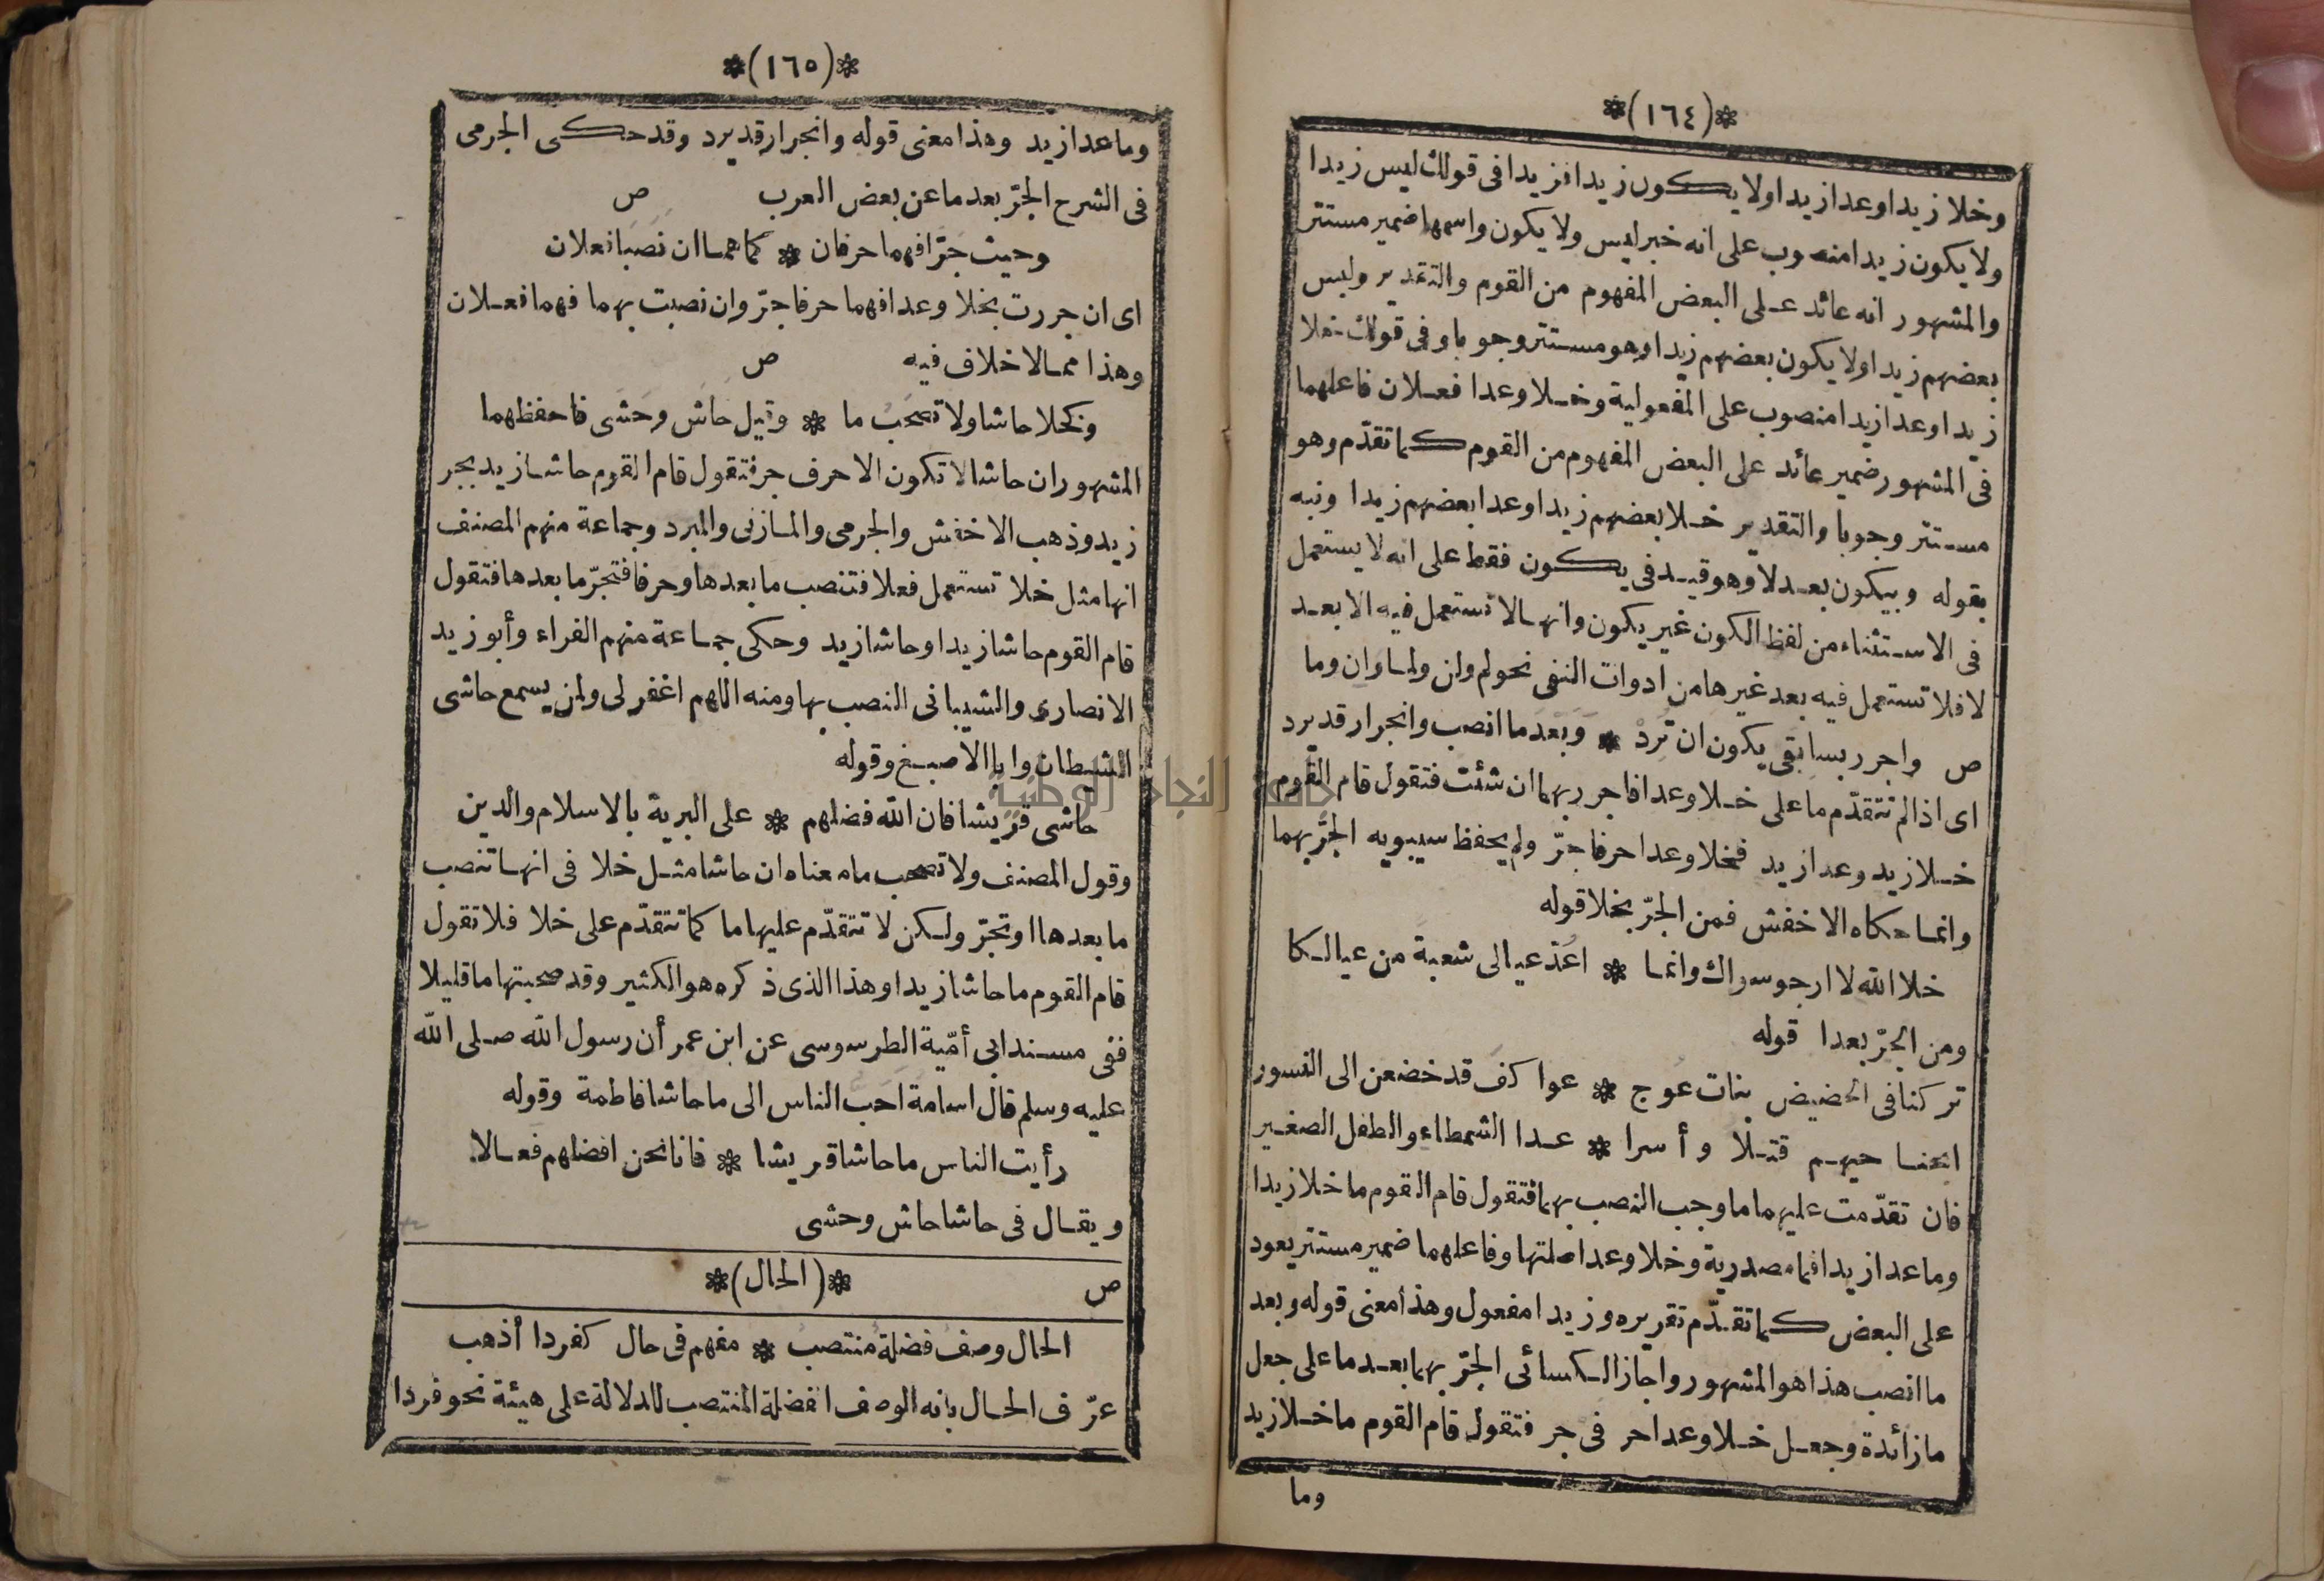 *(١٦٤)*
وخلا زيدا وعدا زيدا ولا يكون زيدا فزيدا فى قولك ليس زيدا
ولا يكون زيدا منصوب على انه خبر ليس ولا يكون واسمها ضمير مستتر
والمشهور انه عائد على البعض المفهوم من القوم والتقدير وليس
بعضهم زيدا ولا يكون بعضهم زيدا وهو مستتر وجوبا وفى قولك خلا
زيدا وعدا زيدا منصوب على المفعولية وخلا وعدا فعلان فاعلهما
فى المشهور ضمير عائد على البعض المفهوم من القوم كما تقدّم وهو
مستتر وجوبا والتقدير خلا بعضهم زيدا وعدا بعضهم زيدا ونبه
بقوله وبيكون بعد لا وهو قيد فى يكون فقط على انه لا يستعمل
فى الاستثناء من لفظ الكون غير يكون وانها لا تستعمل فيه الا بعد
لا فلا تستعمل فيه بعد غيرها من ادوات النفى نحو لم ولن ولما وان وما
ص واجرر بسابقى يكون ان تَرِدْ * وَبعْدَما انصب وانجرار قد يرد
اى اذا لم تتقدّم ما على خلا وعدا فاجرر بهما ان شئت فتقول قام القوم
خلا زيد وعدا زيد فخلا وعدا حرفا جرّ ولم يحفظ سيبويه الجرّ بهما
وانما حكاه الاخفش فمن الجرّ بخلا قوله
خلا الله لا ارجو سواك وانما * اعُدّ عيالى شعبة من عيالكا
ومن الجرّ بعدا قوله
تركنا فى الحضيض بنات عُوج * عواكفَ قد خضعن الى النسور
ابحنا حيهم قتلا وأسرا * عدا الشمطاء والطفل الصغير
فان تقدّمت عليهما ما وجب النصب بهما فتقول قام القوم ما خلا زيدا
وما عدا زيدا فما مصدرية وخلا وعدا صلتها وفاعلهما ضمير مستتر يعود
على البعض كما تقدّم تقريره وزيدا مفعول وهذا معنى قوله وبعد
ما انصب هذا هو المشهور واجاز الكسائى الجرّ بهما بعد ما على جعل
ما زائدة وجعل خلا وعدا حرفى جر فتقول قام القوم ما خلا زيد
وما
*(١٦٥)*
وما عدا زيد وهذا معنى قوله وانجرار قد يرد وقد حكى الجرمى
فى الشرح الجرّ بعد ما عن بعض العرب ص
وحيث جَرّا فهما حرفان * كما هما ان نَصَبَا فعلان
اى ان جررت بخلا وعدا فهما حرفا جرّ وان نصبت بهما فهما فعلان
وهذا مما لا خلاف فيه ص
وكخلا حاشا ولا تَصْحَبُ ما * وقيل حَاشَ وحَشَى فاحفظهما
المشهور ان حاشا لا تكون الا حرف جر فتقول قام القوم حاشا زيد بجر
زيد وذهب الاخفش والجرمى والمازنى والمبرد وجماعة منهم المصنف
انها مثل خلا تستعمل فعلا فتنصب ما بعدها وحرفا فتجرّ ما بعدها فتقول
قام القوم حاشا زيدا وحاشا زيد وحكى جماعة منهم الفراء وأبو زيد
الانصارى والشيبانى النصب بها ومنه اللهم اغفر لى ولمن يسمع حاشى
الشيطان وابا الاصبغ وقوله
حاشى قريشا فان الله فضلهم * على البرية بالاسلام والدين
وقول المصنف ولا تصحب ما معناه ان حاشا مثل خلا فى انها تنصب
ما بعدها او تجرّ ولكن لا تتقدّم عليها ما كما تتقدّم على خلا فلا تقول
قام القوم ما حاشا زيدا وهذا الذى ذكره هو الكثير وقد صحبتها ما قليلا
ففى مسند ابى أمّية الطرسوسى عن ابن عمر أن رسول الله صلى الله
عليه وسلم قال اسامة احَبّ الناس الى ما حاشا فاطمة وقوله
رأيت الناس ما حاشا قريشا * فانا نحن افضلهم فعالا
ويقال فى حاشا حاش وحشى
ص *(الحال)*
الحال وصفٌ فضلةٌ منتصبُ * مفهم فى حال كفردا أذهب
عرّف الحال بانه الوصف الفضلة المنتصب للدلالة على هيئة نحو فردا
جامعة النجاح الوطنية